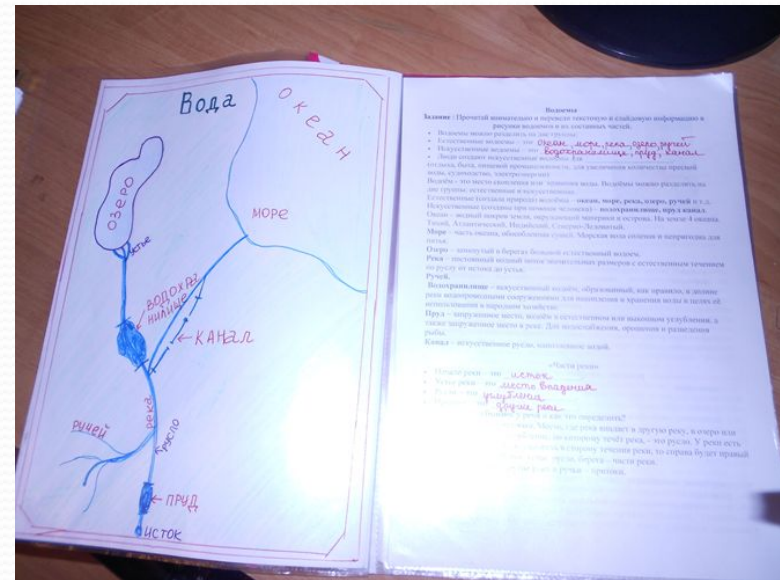 Вода
Океан
озеро
устье
море
водохра
нилище
канал
река
ручей
русло
пруд
исток
Водоемы
Задание : Прочитай внимательно и переведи текстовую и слайдовую информацию в
рисунки водоемов и их составных частей.
Водоемы можно разделить на две группы:
Естественные водоемы – это океан, море, река, озеро, ручей
Искусственные водоемы – это водохранилище, пруд, канал
Люди создают искусственные водоемы для
отдыха, быта, пищевой промышленности, для увеличения количества пресной
воды, судоходство, электроэнергии
Водоём – это место скопления или хранения воды. Водоёмы можно разделить на
две группы: естественные и искусственные.
Естественные (создала природа) водоёмы – океан, море, река, озеро, ручей и т.д.
Искусственные (созданы при помощи человека) – водохранилище, пруд канал.
Океан – водный покров земли, окружающий материки и острова. На земле 4 океана
Тихий, Атлантический, Индийский, Северно-Ледовитый.
Море – часть океана, обособленная сушей. Морская вода соленая и непригодна для
питья.
Озеро – замкнутый в берегах большой естественный водоем.
Река – постоянный водный поток значительных размеров с естественным течением
по руслу от истока до устья.
Ручей.
Водохранилище – искусственный водоём, образованный, как правило, в долине
реки водоподпорными сооружениями для накопления и хранения воды в целях её
использования в народном хозяйстве.
Пруд – запруженное место, водоём в естественном или выкопанном углублении, а
также запруженное место в реке. Для водоснабжения, орошения и разведения
рыбы.
Канал – искусственное русло, наполненное водой.
«Части реки»
Начало реки – это исток
Устье реки – это место впадения
Русло – это углубление
другие реки
у реки и как это определить?
Место, где река впадает в другую реку, в озеро или
по которому течёт река, - это русло. У реки есть
в сторону течения реки, то справа будет правый
русло, берега – части реки.
и ручьи – притоки.